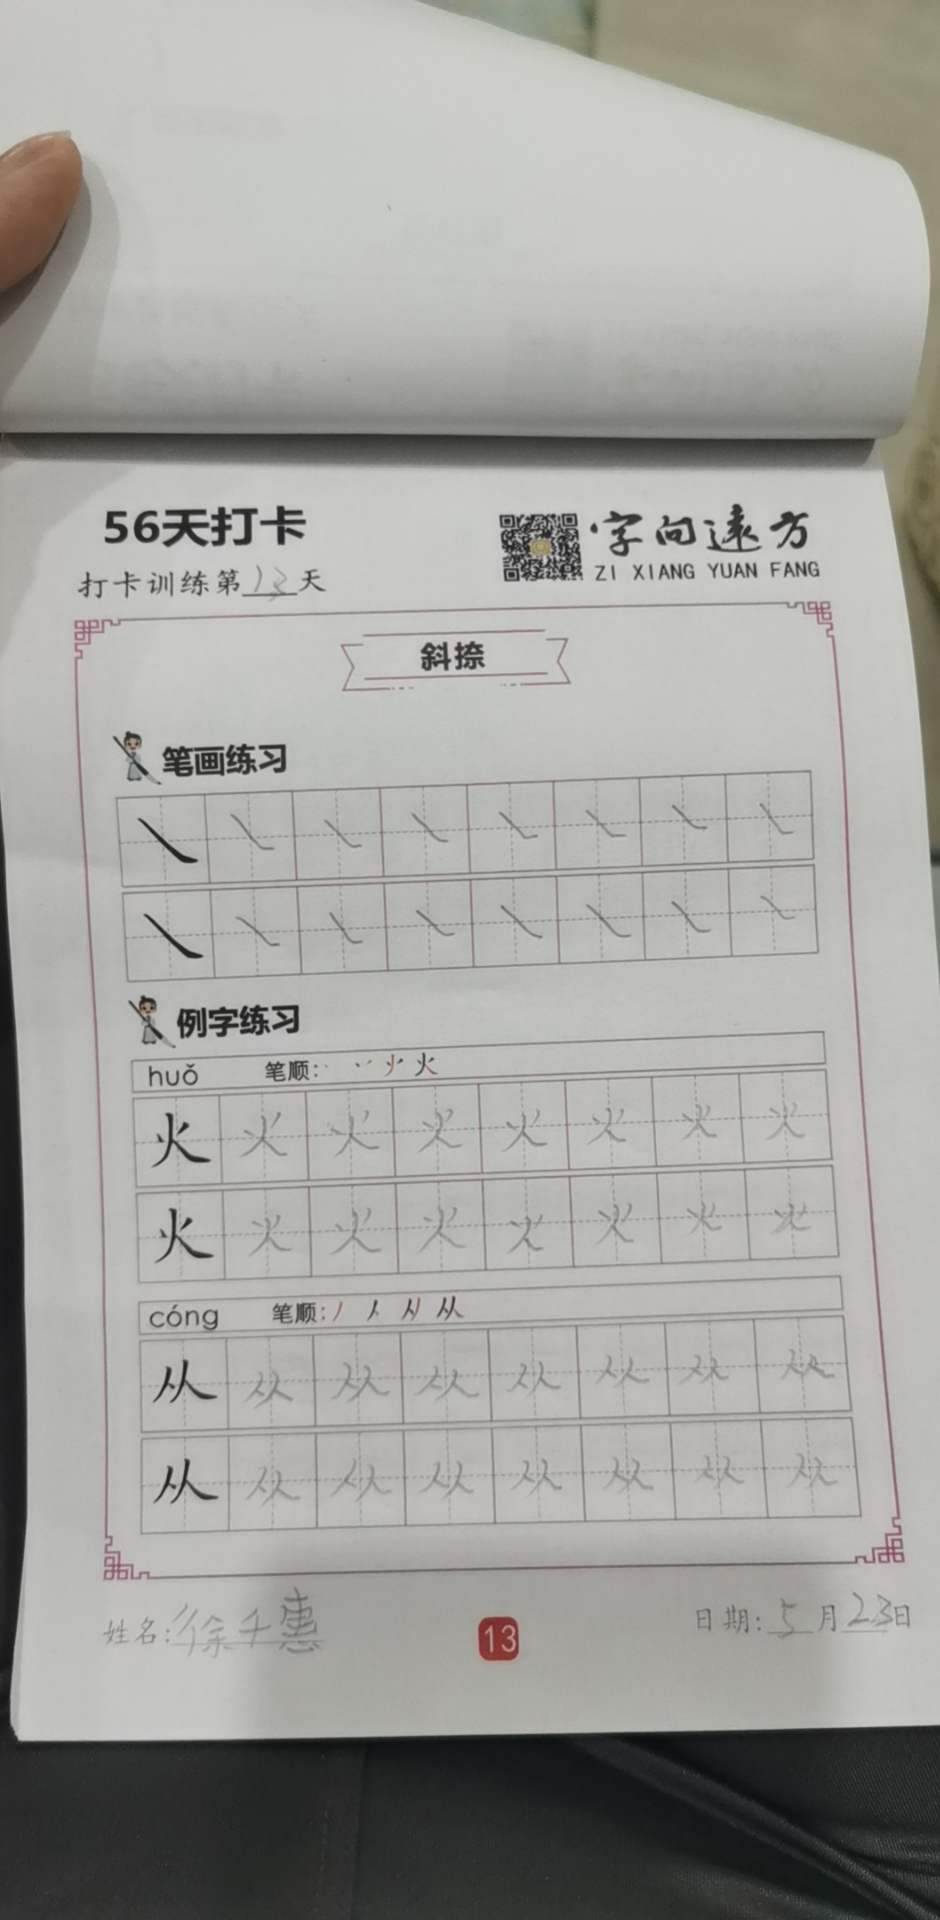 56天打卡
字向遠方
打卡训练第13天
ZI XIANG YUAN FANG
斜捺
笔画练习
例字练习
huǒ 笔顺: 火
火 火 火 火 火 火 火 火
火 火 火 火 火 火 火 火
cóng 笔顺: 丿 人 从
从 从 从 从 从 从 从 从
从 从 从 从 从 从 从 从
姓名:徐千惠 13 日期:5月23日